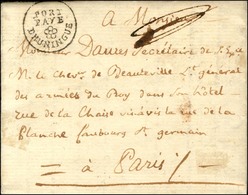 PORT
PAYE
D'HUNINGUE
A Monsieur
Monsieur Danvers Secrétaire de S. E.
M. le Chevr. de Beauteville Lt. général
des armées du Roy dans son hôtel
rue de la Chaise vis à vis la rue de la
Planche fauxbourg St germain
à Paris /.